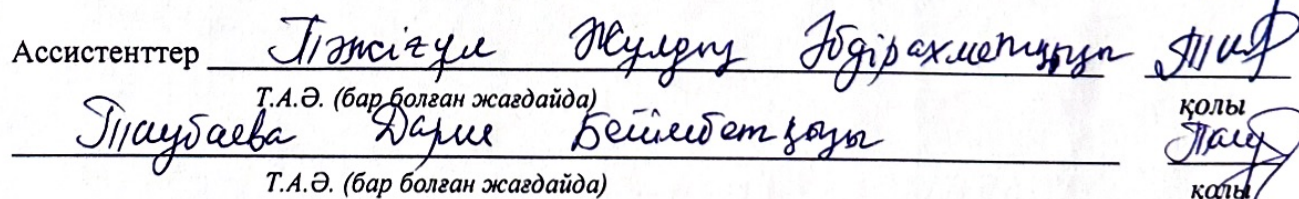 Ассистенттер Тәжіғұл Жұлдыз Әбдірахметқызы
Т.А.Ә. (бар болған жағдайда) қолы
Таубаева Дария Бейімбетқызы
Т.А.Ә. (бар болған жағдайда) қолы